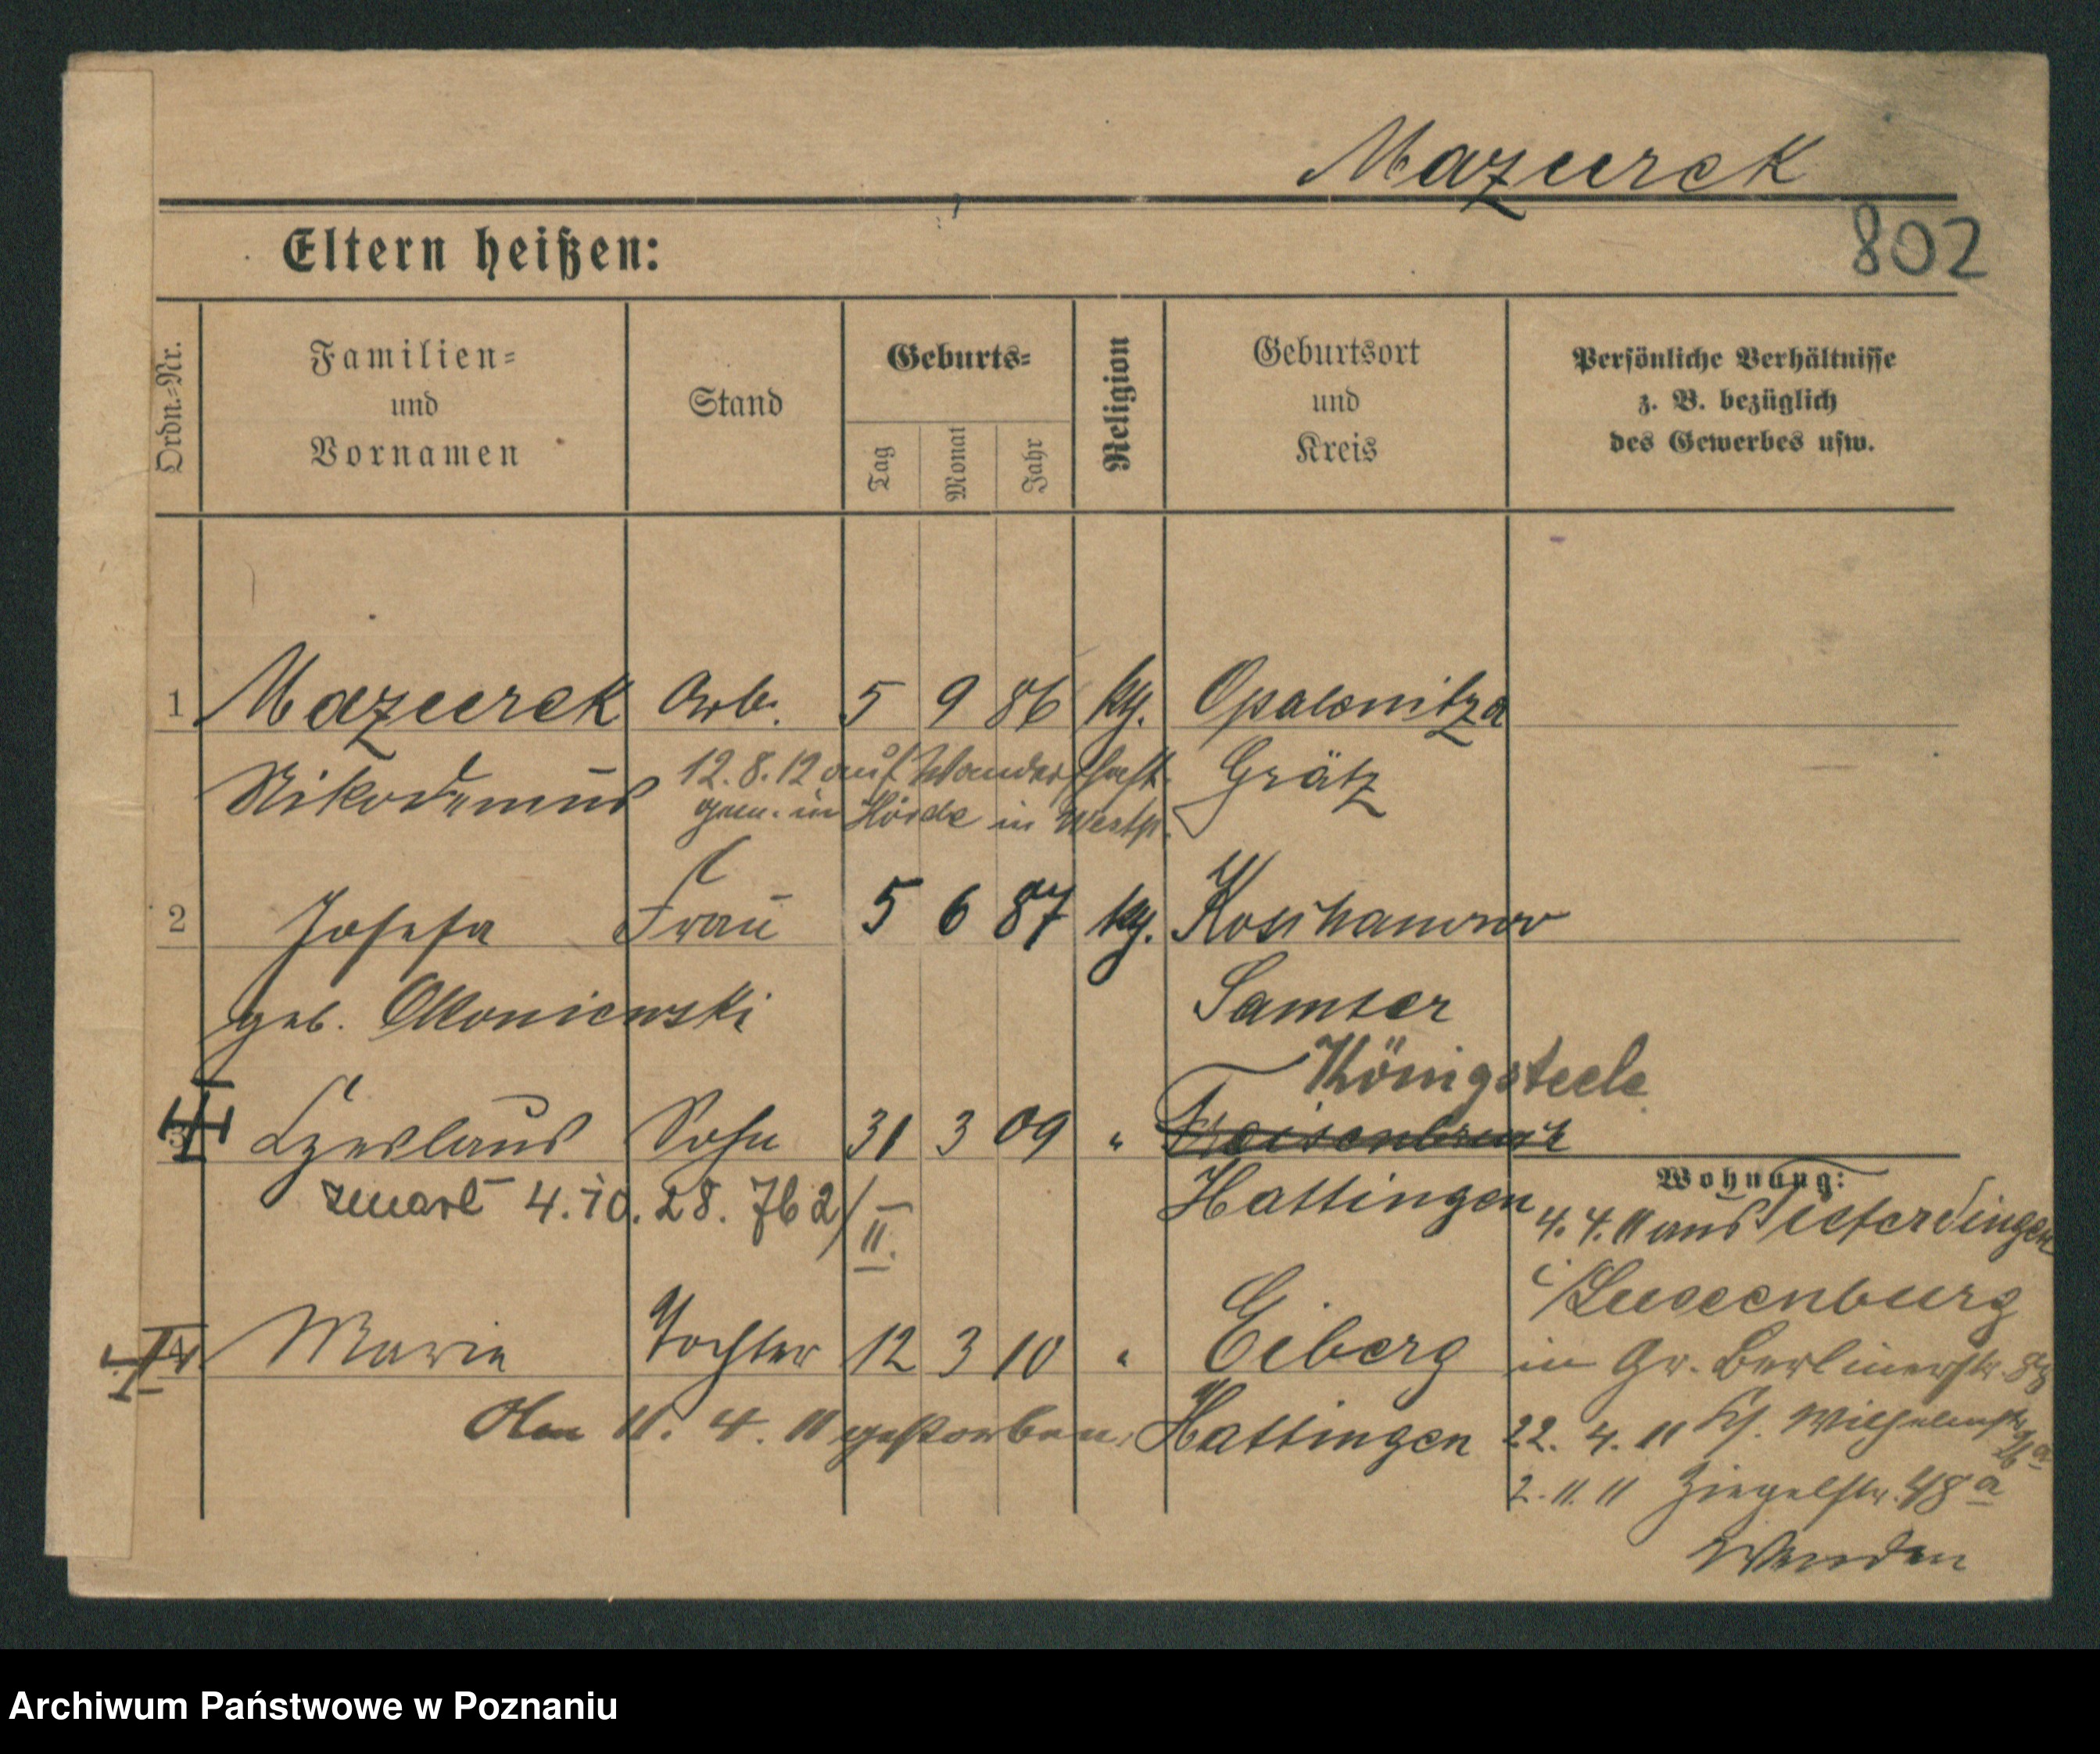 Mazurek
802
Eltern heißen:
Ordn.=Nr.
Familien=
und
Vornamen
Stand
Geburts=
Tag
Monat
Jahr
Religion
Geburtsort
und
Kreis
Persönliche Verhältnisse
z. B. bezüglich
des Gewerbes usw.
1 Mazurek Arb. 5 9 86 kg. Opalenitza
Nikodemus 12.8.12 auf Wanderschaft Grätz
gem. in Hörde in Westf.
2 Josefa Frau 5 6 87 kg.
geb. Samter
Königsteele
3 Czeslaus Sohn 31 3 09 " Freisenbruch
Hattingen
zmarł 4.10.28. 762/II.
Wohnung:
4.4.11 aus Dieferdingen
i/Luxenburg
4 Marie Tochter 12 3 10 " Eiberg
in Gr. Berlinerstr.
Am 11. 4. 11 gestorben. Hattingen
22. 4. 11 Wilhelmstr.
2. 11. 11 Ziegelstr. 48a
Wenden
Archiwum Państwowe w Poznaniu